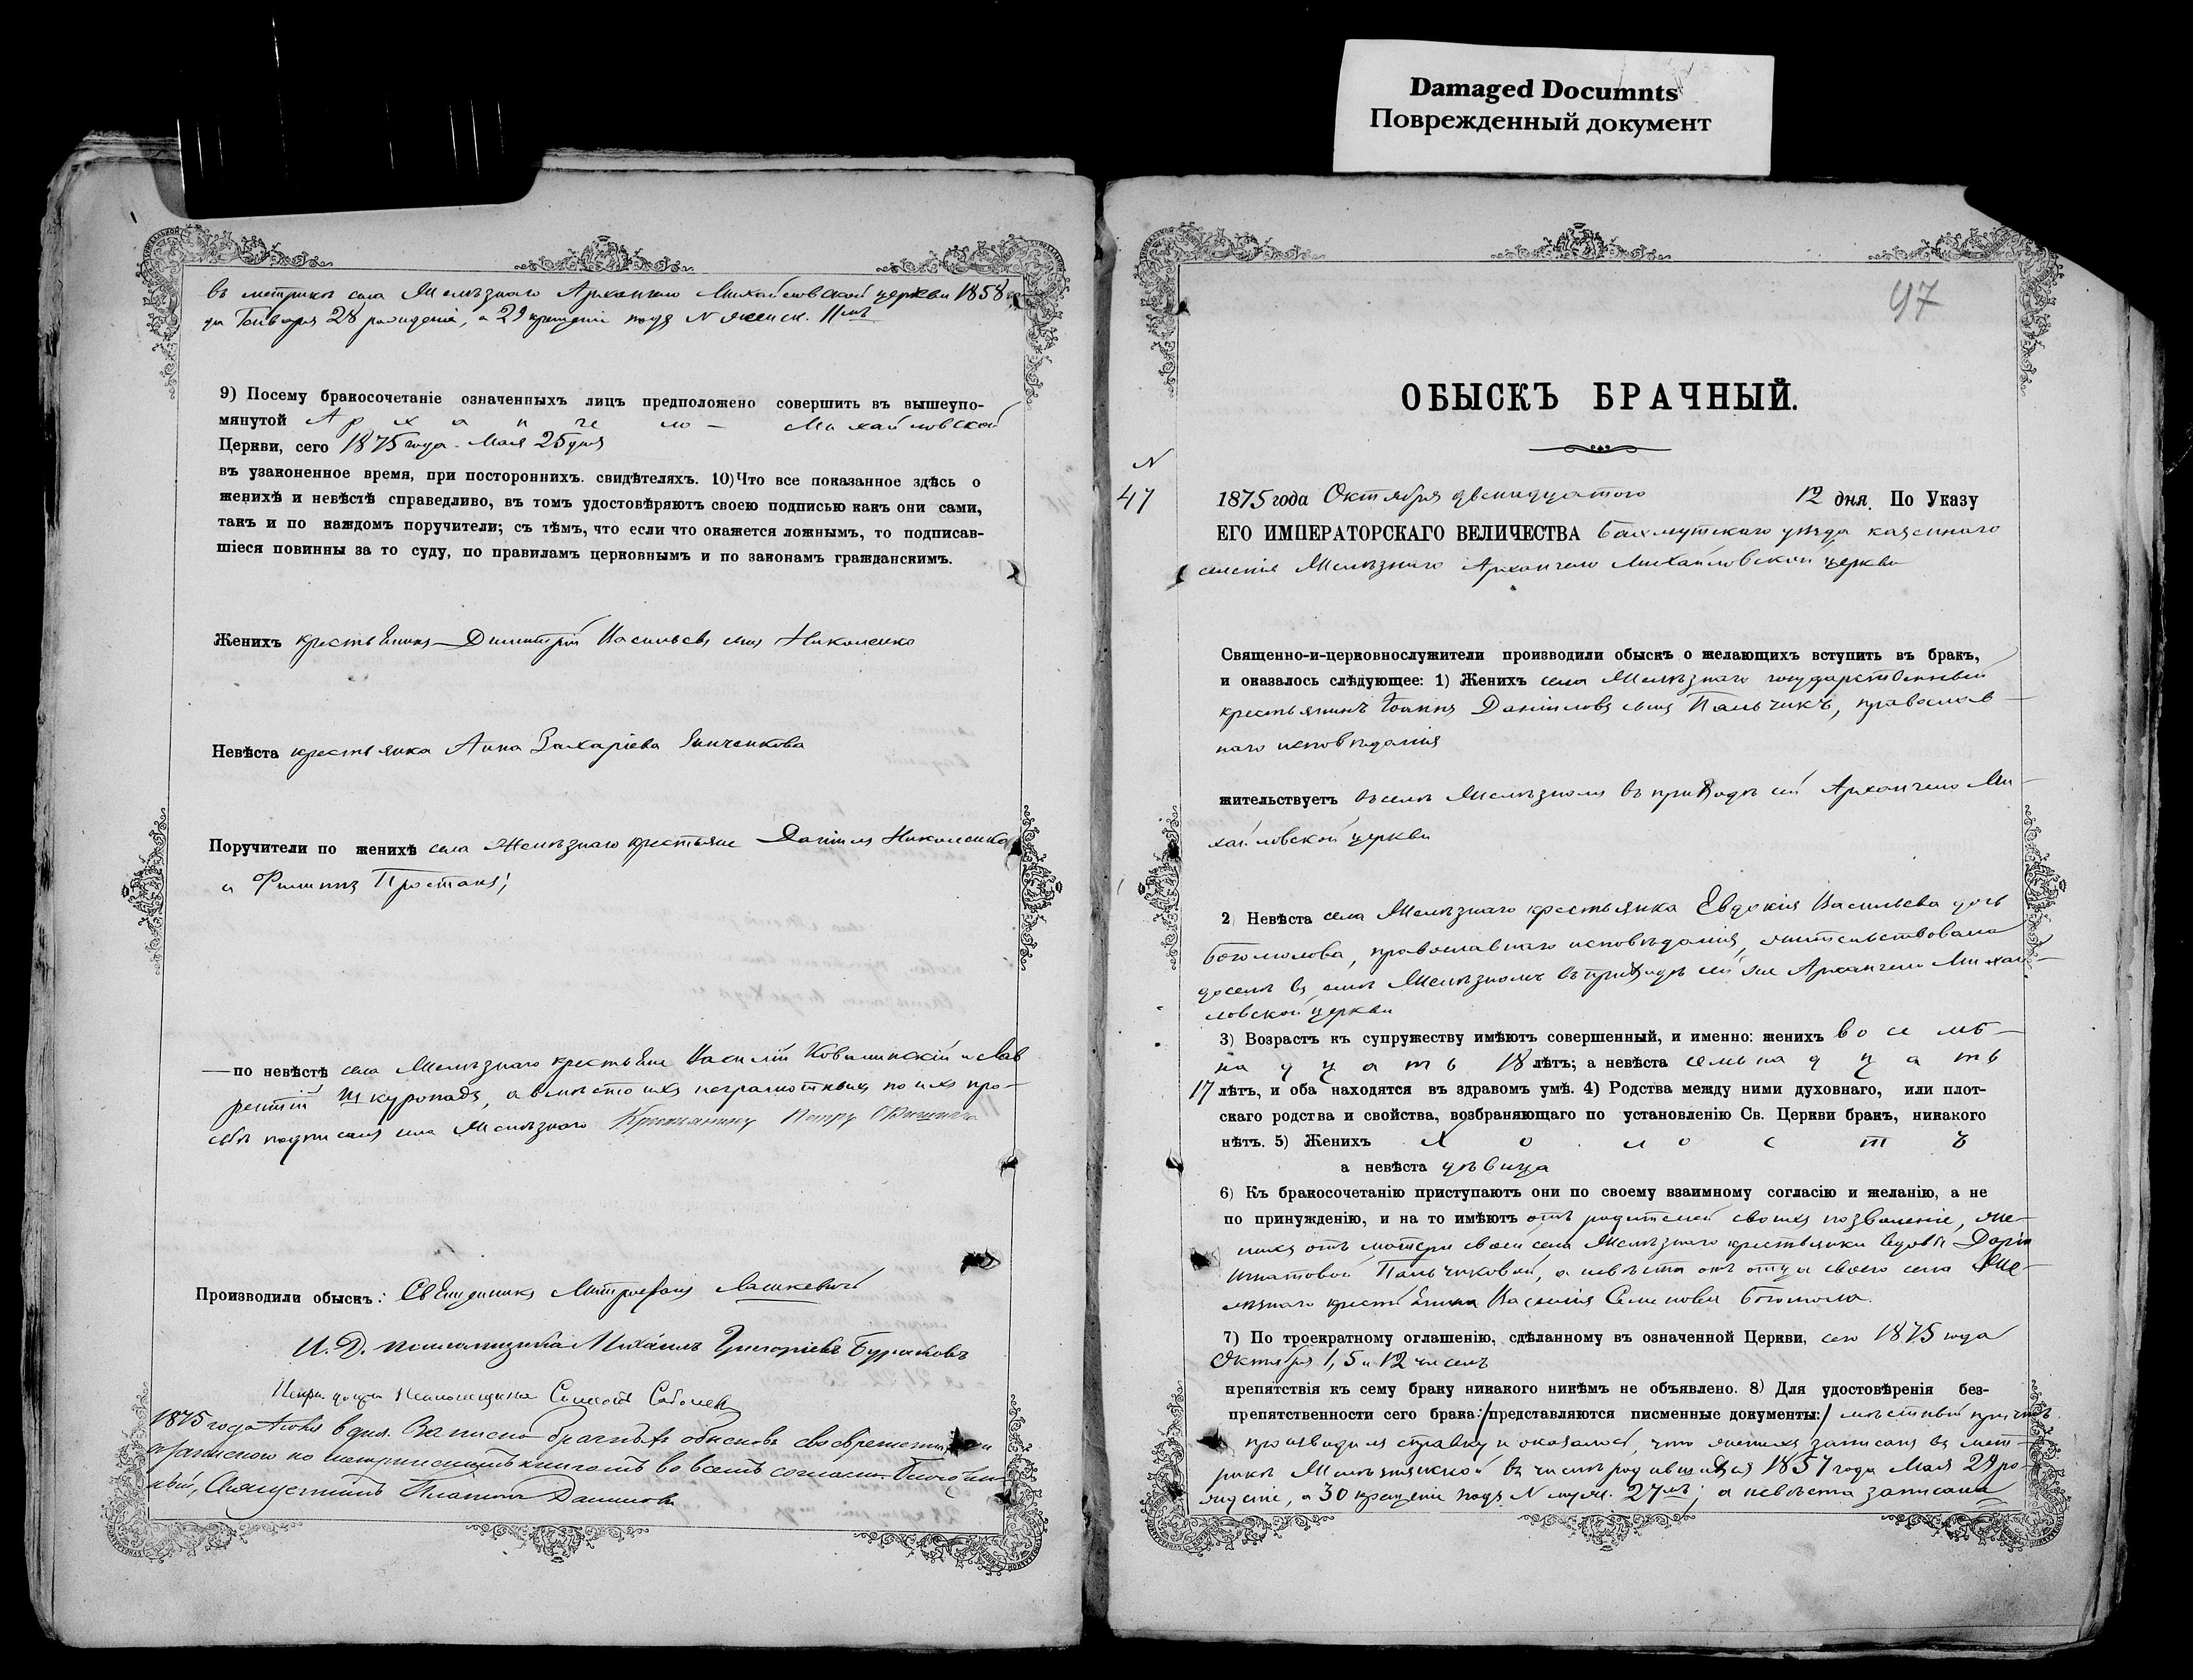 Damaged Documnts
Поврежденный документ
въ метрикѣ села Желѣзнаго Архангело Михайловской церкви 1858 го-
да Генваря 28 рожденіе, а 29 крещеніе подъ N женск. 11мъ
9) Посему бракосочетаніе означенныхъ лицъ предположено совершить въ вышеупо-
мянутой Архангело - Михайловской
Церкви, сего 1875 года Мая 25 дня
въ узаконенное время, при постороннихъ свидѣтеляхъ. 10) Что все показанное здѣсь о
женихѣ и невѣстѣ справедливо, въ томъ удостовѣряютъ своею подписью какъ они сами,
такъ и по каждомъ поручители; съ тѣмъ, что если что окажется ложнымъ, то подписав-
шіеся повинны за то суду, по правиламъ церковнымъ и по законамъ гражданскимъ.
Женихъ крестьянинъ Димитрій Васильевъ сынъ Николенко
Невѣста крестьянка Анна Захаріева Зинченкова
Поручители по женихѣ села Желѣзнаго крестьяне Даніилъ Николенко
и Филиппъ Простакъ;
— по невѣстѣ села Желѣзнаго крестьяне Василій Ковалинскій и Лав-
рентій Шкуропадъ, а вмѣсто ихъ неграмотныхъ по ихъ про-
сьбѣ подписалъ села Желѣзнаго Крестьянинъ Петръ
Производили обыскъ: Священникъ Митрофанъ Лашкевичъ
И. Д. псаломщика Михаилъ Григорьевъ Бураковъ
псаломщика Соболевъ
1875 года Іюня дня. Записи брачныхъ обысковъ своевременны и
съ записью по метрическимъ книгамъ во всемъ согласны. Благочин-
ный, Священникъ Платонъ Даниловъ
97
ОБЫСКЪ БРАЧНЫЙ.
N
47
1875 года Октября двенадцатого 12 дня. По Указу
ЕГО ИМПЕРАТОРСКАГО ВЕЛИЧЕСТВА Бахмутскаго уѣзда казеннаго
селенія Желѣзнаго Архангело Михайловской церкви
Священно-и-церковнослужители производили обыскъ о желающихъ вступить въ бракъ,
и оказалось слѣдующее: 1) Женихъ села Желѣзнаго государственный
крестьянинъ Іоаннъ Даніиловъ сынъ Пальчикъ, православ-
наго исповѣданія
жительствуетъ въ селѣ Желѣзномъ въ приходѣ сей Архангело Ми-
хайловской церкви
2) Невѣста села Желѣзнаго крестьянка Евдокія Васильева дочь
Богомолова, православнаго исповѣданія, жительствовала
доселѣ въ селѣ Желѣзномъ въ приходѣ сей же Архангело Михай-
ловской церкви
3) Возрастъ къ супружеству имѣютъ совершенный, и именно: женихъ восемь-
надцать 18 лѣтъ; а невѣста семьнадцать
17 лѣтъ, и оба находятся въ здравомъ умѣ. 4) Родства между ними духовнаго, или плот-
скаго родства и свойства, возбраняющаго по установленію Св. Церкви бракъ, никакого
нѣтъ. 5) Женихъ холостъ
а невѣста дѣвица
6) Къ бракосочетанію приступаютъ они по своему взаимному согласію и желанію, а не
по принужденію, и на то имѣютъ отъ родителей своихъ позволеніе, же-
нихъ отъ матери своей села Желѣзнаго крестьянки вдовы Даріи
Игнатовой Пальчиковой, а невѣста отъ отца своего села Же-
лѣзнаго крестьянина Василія Семенова Богомола.
7) По троекратному оглашенію, сдѣланному въ означенной Церкви, сего 1875 года
Октября 1, 5 и 12 чиселъ
препятствія къ сему браку никакого никѣмъ не объявлено. 8) Для удостовѣренія без-
препятственности сего брака:/представляются писменные документы:/ мѣстный причтъ
производилъ справку и оказалось, что женихъ записанъ въ мет-
рикѣ Желѣзнянской въ числѣ родившихся 1857 года Мая 29 ро-
жденіе, а 30 крещеніе подъ N муж. 27мъ; а невѣста записана